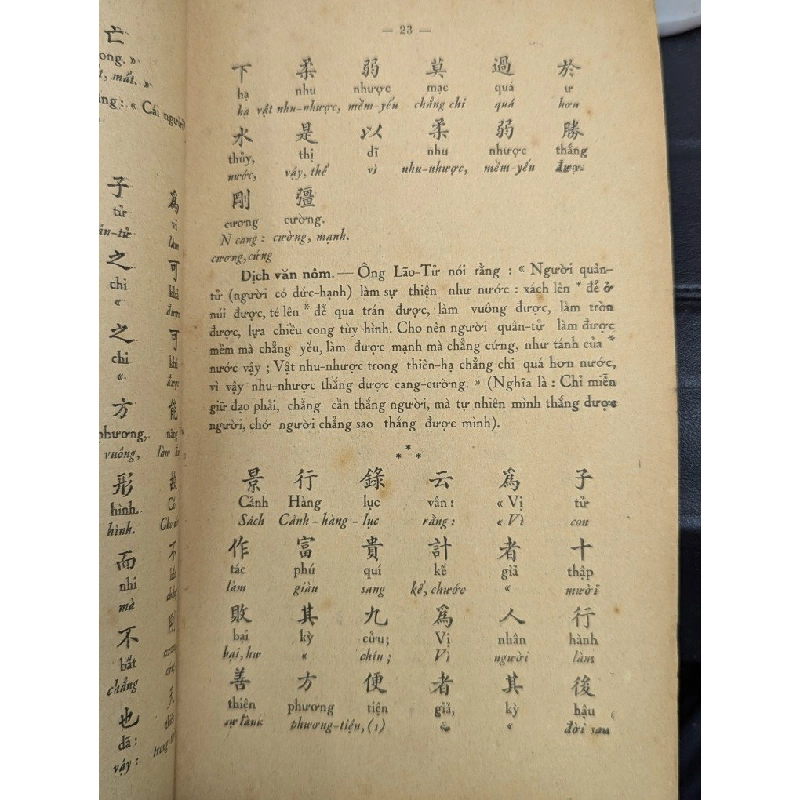 — 23 —
下 柔 弱 莫 過 於
hạ nhu nhược mạc quá ư
hạ vật nhu-nhược, mềm-yếu chẳng chi quá hơn
水 是 以 柔 弱 勝
thủy, thị dĩ nhu nhược thắng
nước, vậy, thế vì nhu-nhược, mềm-yếu được
剛 彊
cương cường.
N cang : cường, mạnh.
cương, cứng
Dịch văn nôm. — Ông Lão-Tử nói rằng : « Người quân-
tử (người có đức-hạnh) làm sự thiện như nước : xách lên * để ở
núi được, té lên * để qua trán được, làm vuông được, làm tròn
được, lựa chiều cong tùy hình. Cho nên người quân-tử làm được
mềm mà chẳng yếu, làm được mạnh mà chẳng cứng, như tánh của *
nước vậy ; Vật nhu-nhược trong thiên-hạ chẳng chi quá hơn nước,
vì vậy nhu-nhược thắng được cang-cường. » (Nghĩa là : Chi miễn
giữ đạo phải, chẳng cần thắng người, mà tự nhiên mình thắng được
người, chớ người chẳng sao thắng được mình).
* * *
景 行 錄 云 爲 子
Cảnh Hàng lục vân : « Vị tử
Sách Cảnh-hàng-lục rằng : « Vì con
作 富 貴 計 者 十
tác phú quí kế giả thập
làm giàu sang kế, chước « mười
敗 其 九 爲 人 行
bại kỳ cửu ; Vị nhân hành
hại, hư « chín ; Vì người làm
善 方 便 者 其 後
thiện phương tiện giả, kỳ hậu
sự lành phương-tiện, (1) « « đời sau
亡
子
tử
之
chi
«
之
chi
«
方
phương,
vuông,
形
hình.
hình.
而
nhi
mà
不
bất
chẳng
也
dã :
vậy :
爲
vi
làm
可
可
能
故
不